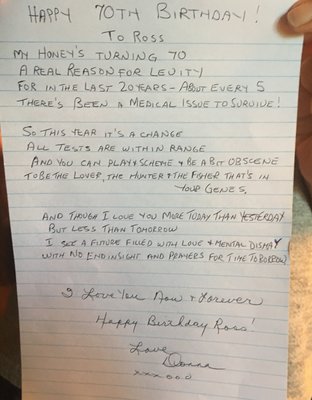 HAPPY 70TH BIRTHDAY!
TO ROSS
MY HONEY'S TURNING 70
A REAL REASON FOR LEVITY
FOR IN THE LAST 20 YEARS - ABOUT EVERY 5
THERE'S BEEN A MEDICAL ISSUE TO SURVIVE!
SO THIS YEAR IT'S A CHANGE
ALL TESTS ARE WITHIN RANGE
AND YOU CAN PLAY & SCHEME & BE A BIT OBSCENE
TO BE THE LOVER, THE HUNTER & THE FISHER THAT'S IN
YOUR GENES,
AND THOUGH I LOVE YOU MORE TODAY THAN YESTERDAY
BUT LESS THAN TOMORROW
I SEE A FUTURE FILLED WITH LOVE & MENTAL DISMAY
WITH NO END INSIGHT AND PRAYERS FOR TIME TO BORROW
I Love You Now & Forever
Happy Birthday Ross!
Love
Donna
xxxooo